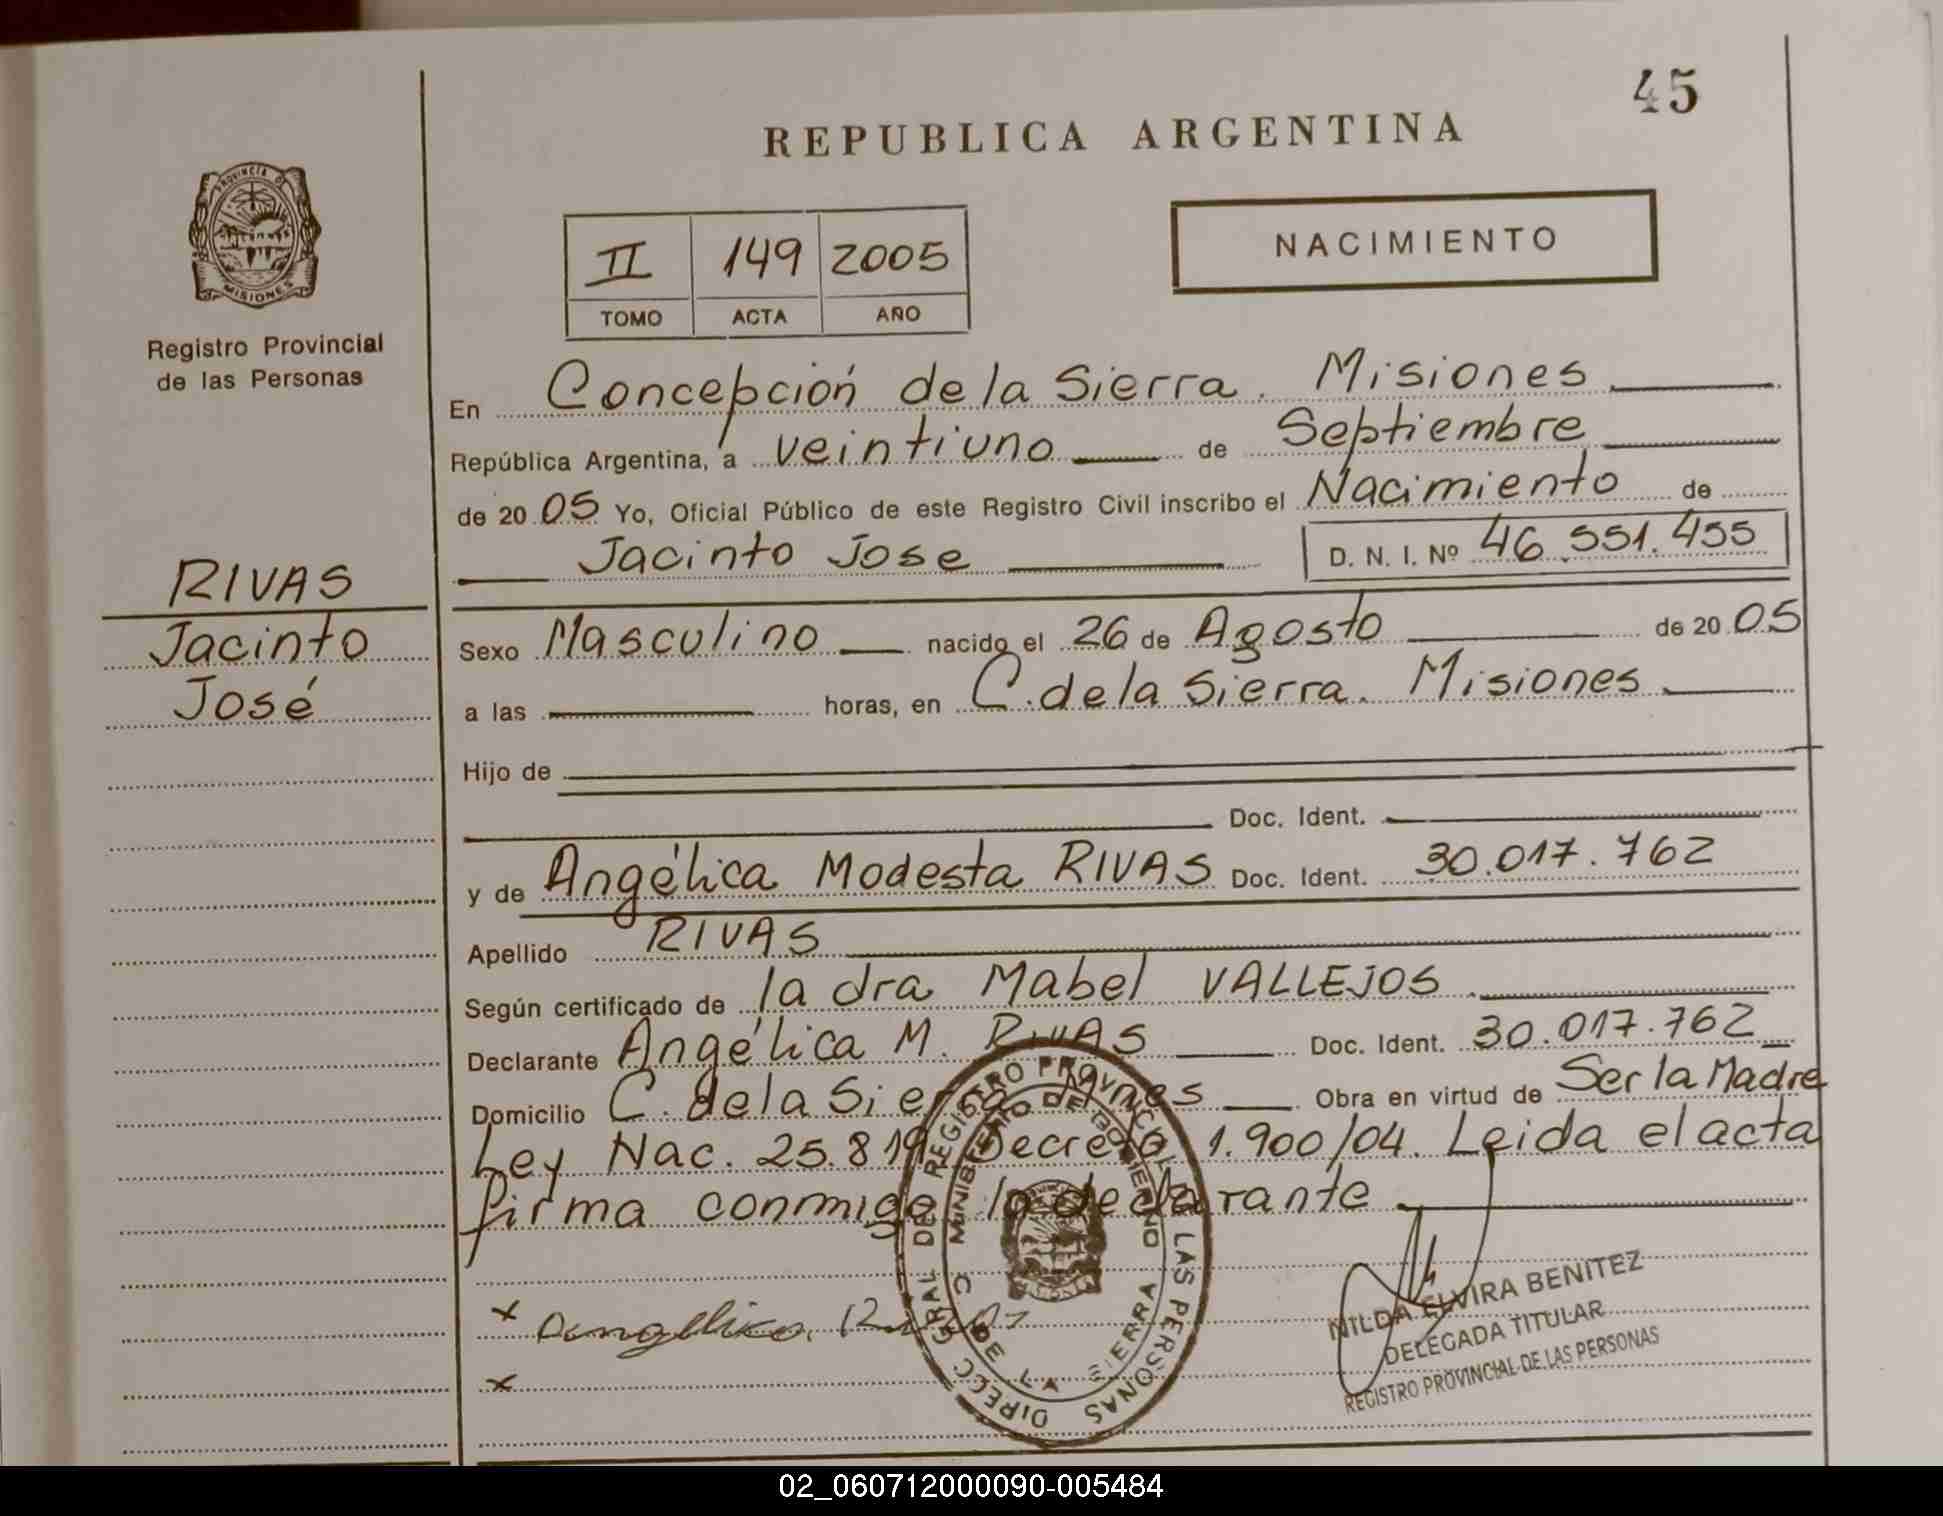 45
REPUBLICA ARGENTINA
PROVINCIA DE
MISIONES
Registro Provincial
de las Personas
II 149 2005
TOMO ACTA AÑO
NACIMIENTO
En Concepción de la Sierra. Misiones
República Argentina, a veintiuno de Septiembre
de 20 05 Yo, Oficial Público de este Registro Civil inscribo el Nacimiento de
Jacinto Jose D. N. I. Nº 46.551.455
RIVAS
Jacinto
José
Sexo Masculino nacido el 26 de Agosto de 20 05
a las horas, en C. de la Sierra. Misiones
Hijo de
Doc. Ident.
y de Angélica Modesta RIVAS Doc. Ident. 30.017.762
Apellido RIVAS
Según certificado de la dra Mabel VALLEJOS
Declarante Angélica M. RIVAS Doc. Ident. 30.017.762
Domicilio C. de la Sierra Mnes Obra en virtud de Ser la Madre
Ley Nac. 25.819 Decreto 1.900/04. Leida el acta
firma conmigo la declarante
x Angelica Rivas
x
DIRECC GRAL DEL REGISTRO PROVINCIAL DE LAS PERSONAS
MINISTERIO DE GOBIERNO
C DE LA SIERRA
NILDA ELVIRA BENITEZ
DELEGADA TITULAR
REGISTRO PROVINCIAL DE LAS PERSONAS
02_060712000090-005484